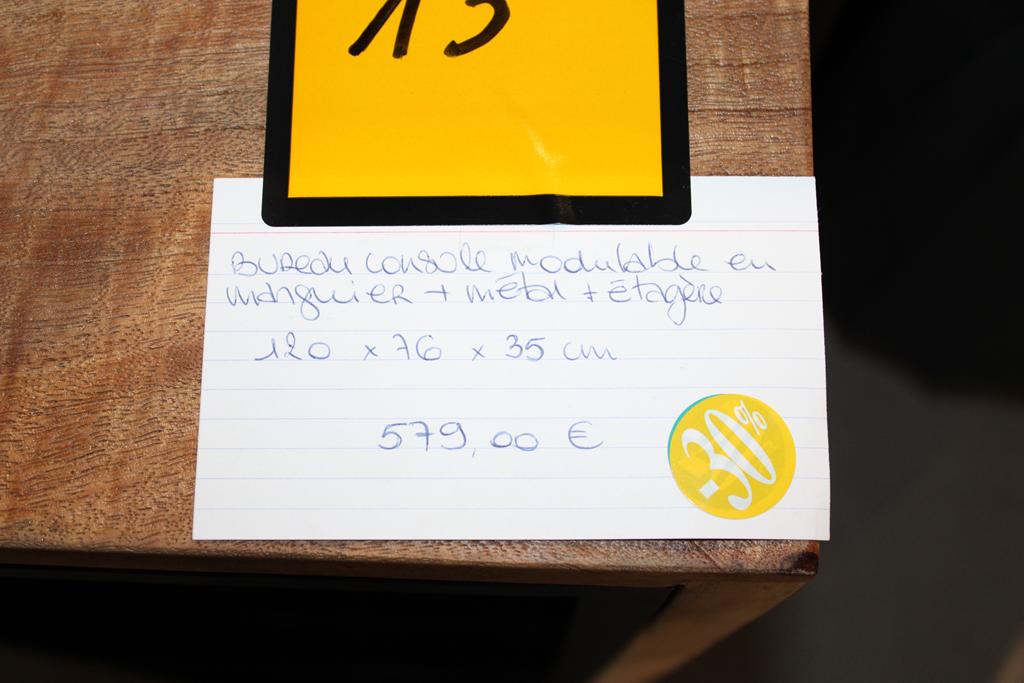 13
Bureau console modulable en
manguier + métal + étagère
120 x 76 x 35 cm
579,00 €
-30%